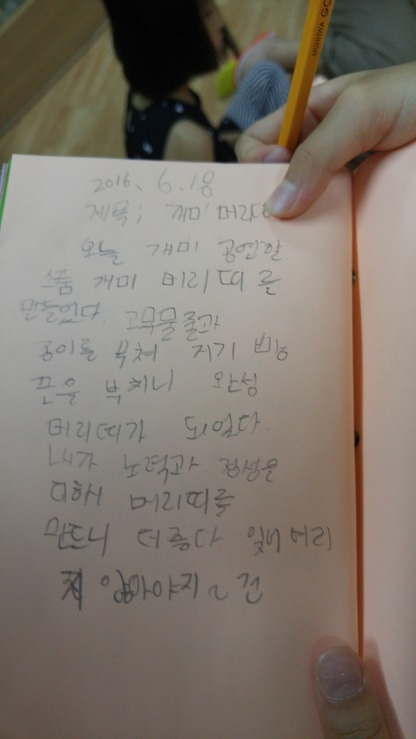 2016. 6.18
제목; 개미 머리띠
오늘 개미 공연할
소품 개미 머리띠를
만들었다.
종이를 부쳐
끈을 부치니 완성
머리띠가 되었다.
내가 노력과 정성을
다하서 머리띠를
만드니 더좋다 잊어버리
지 않아야지~